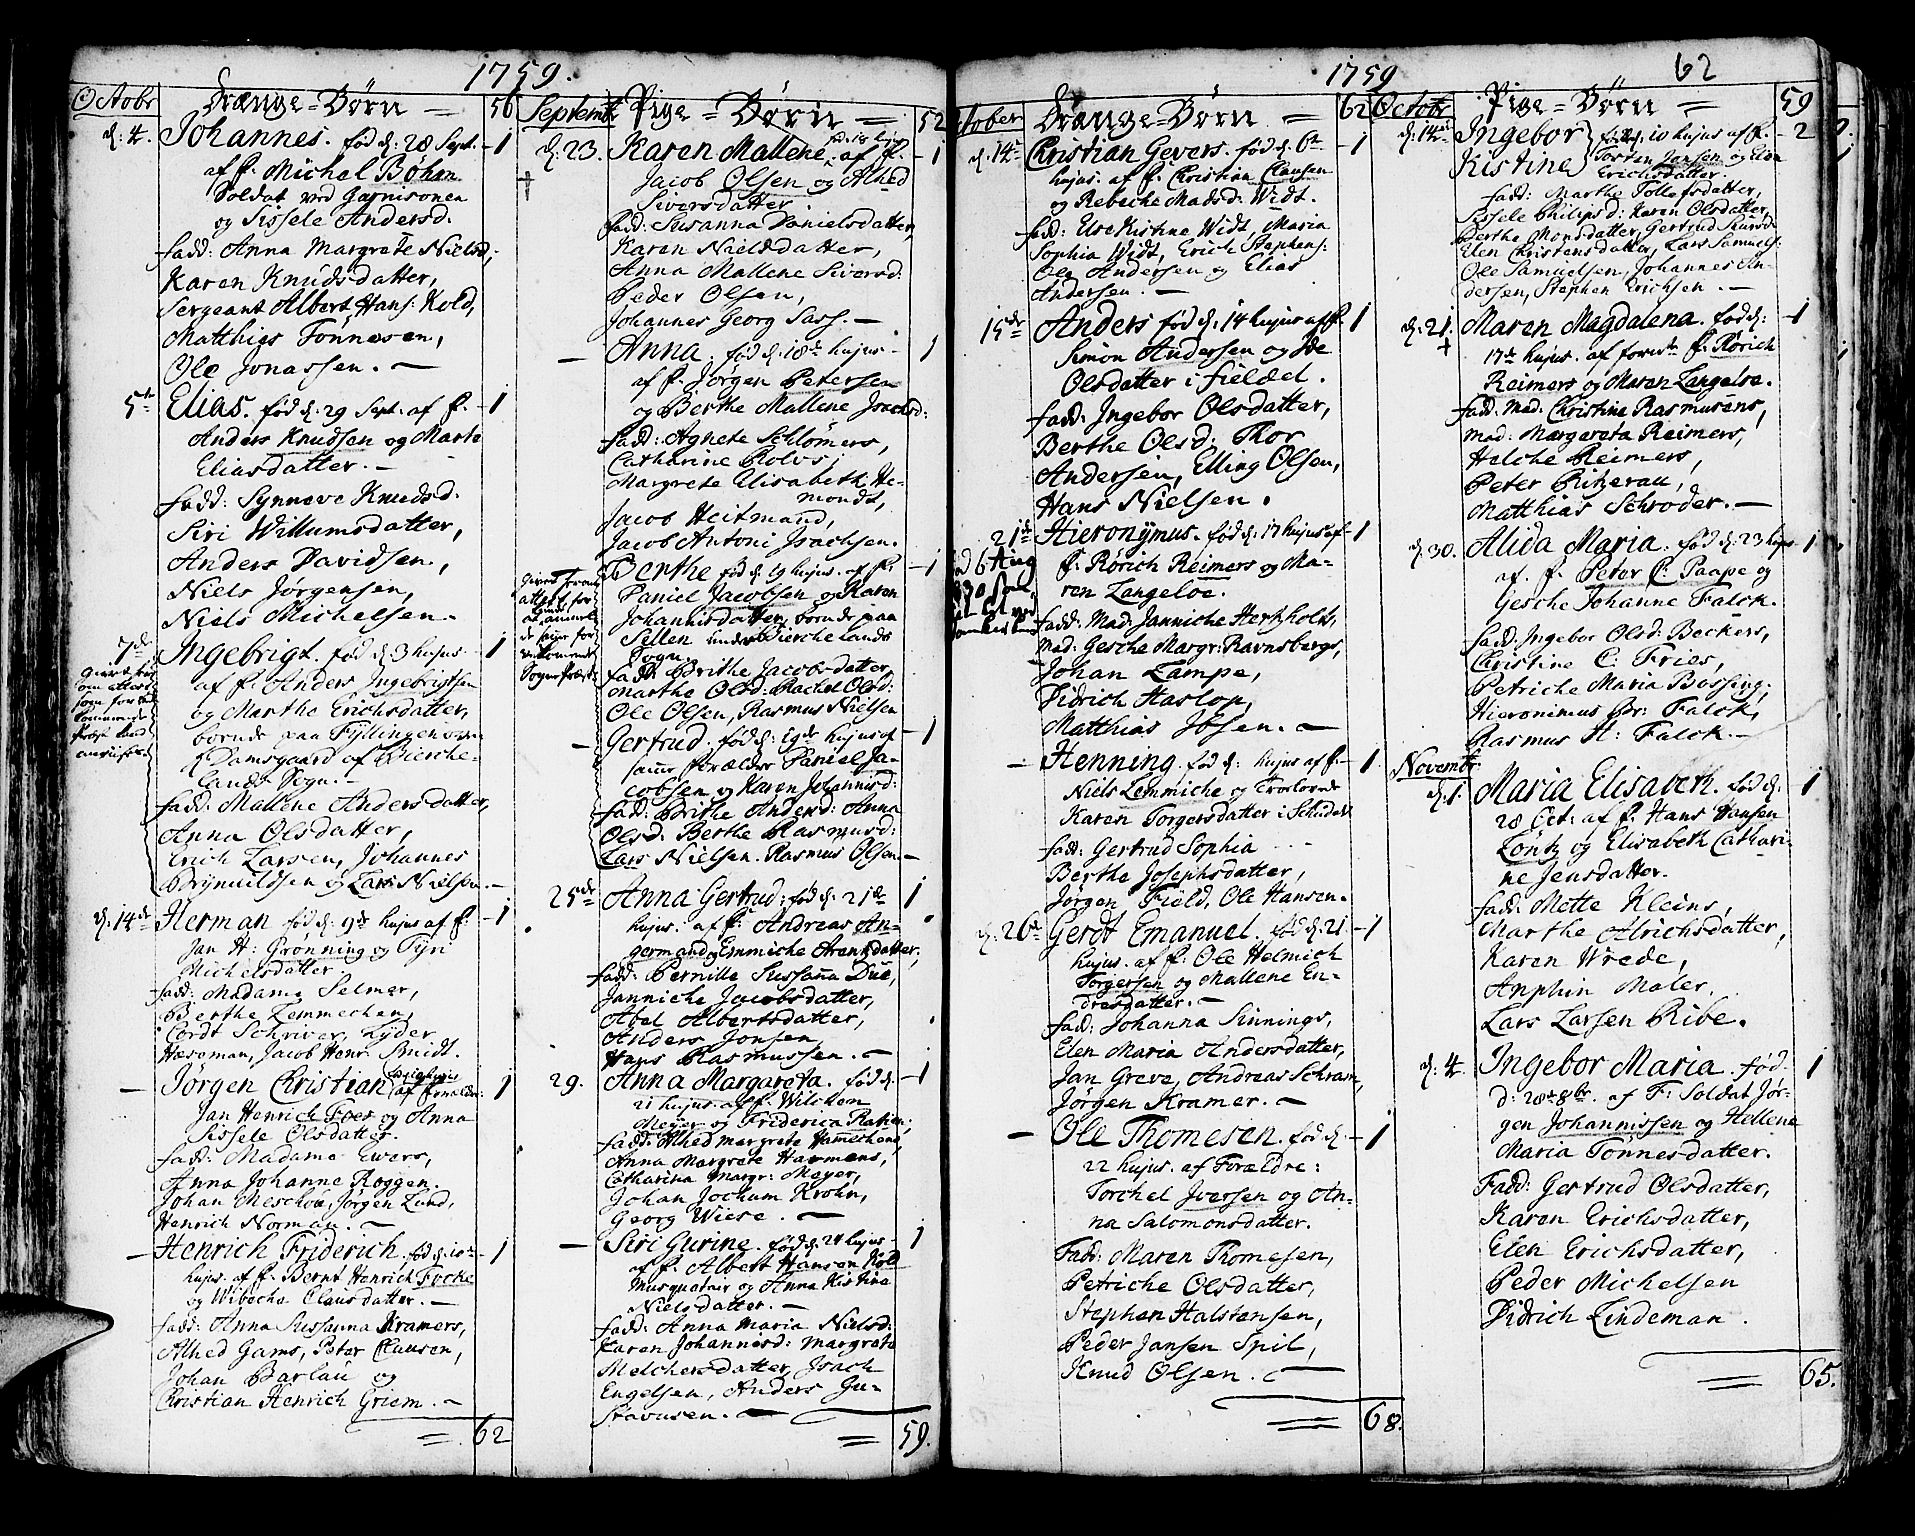 1759.
Octobr
Drænge=Børn
56
d: 4. Johannes. fød d: 28 Sept. 1
af f. Michel Bøhan
Soldat ved Garnisonen
og Sissele Andersd:
fadd: Anna Margrete Nielsd;
Karen Knudsdatter,
Sergeant Albert Hans: Kold,
Matthias Tønnesen,
Ole Jonassen.
5te Elias. fød d: 29 Sept: af f. 1
Anders Knudsen og Marte
Eliasdatter.
fadd: Synneve Knudsd:
Siri Willumsdatter,
Anders Davidsen,
Niels Jørgensen,
Niels Michelsen.
7de Ingebrigt. fød d: 3 hujus 1
af f. Anders Ingebrigtsen
og Marthe Erichsdatter,
boende paa Fyllingen
Damsgaard af Bierche-
lands Sogn.
fadd: Mallene Andersdatter,
Anna Olsdatter,
Erich Larsen, Johannes
Brynildsen og Lars Nielsen.
d: 14de Herman fød d: 9de hujus af f: 1
Jan H: Grønning og Syn
Michelsdatter
fadd: Madame Selmer,
Berthe Lemmechen,
Cordt Schriver, Lyder
Haseman, Jacob Henr: Smidt.
Jørgen Christian 1
Jan Henrich Foes og Anna
Sissele Olsdatter.
fadd: Madame Ewers,
Anna Johanne Roggen.
Johan Meschou, Jørgen Lund,
Henrich Norman.
Henrich Friderich. fød d: 10de 1
hujus. af f. Bernt Henrich Focke
og Wibeche Clausdatter.
fadd: Anna Sussanna Kramers,
Alhed Gams, Peter Clausen,
Johan Barlau og
Christian Henrich Griem.
62
Septembr
Pige=Børn
52
d: 23. Karen Mallene, af f. 1
Jacob Olsen og Alhed
Siversdatter.
fadd: Susanna Danielsdatter,
Karen Nielsdatter,
Anna Mallene Siversd:
Peder Olsen,
Johannes Georg Sass.
Anna. fød d: 18de hujus 1
af f. Jørgen Petersen
og Berthe Mallene Isachsd:
fadd: Agnete Schlømers,
Catharine Rolvs,
Margrete Elisabeth He-
mondt,
Jacob Heitmand,
Jacob Antoni Isachsen.
Berthe fød d: 19 hujus. af f: 1
Daniel Jacobsen og Karen
Johannisdatter, boende paa
Sellen under Bierchelands
Sogn.
fadd: Brithe Jacobsdatter,
Marthe Olsd: Rachel Olsd:
Ole Olsen, Rasmus Nielsen
Gertrud. fød d: 19de hujus af 1
samme forældre Daniel Ja-
cobsen og Karen Johannisd:
fadd: Brithe Andersd: Anna
Olsd: Berthe Rasmusd:
Lars Nielsen. Rasmus Olsen.
25de Anna Gertrud: fød d: 21de 1
hujus: af f: Andreas An-
germand og Emmiche Arentsdatter,
fadd: Pernille Sussana Due,
Janniche Jacobsdatter,
Abel Albertsdatter,
Anders Jonsen,
Hans Rasmussen.
29. Anna Margareta. fød d: 1
21 hujus. af f. Wilcken
Meyer og Friderica Ratien
fadd: Alhed Margrete Hamechens,
Anna Margrete Harmens,
Catharina Margr: Meyer,
Johan Jochum Krohn,
Georg Wiese.
Siri Gurine. fød d: 24 hujus 1
af f. Albert Hansen Kold
Musquatair og Anna Kistina
Nielsdatter.
fadd: Anna Maria Nielsd:
Karen Johannisd: Margrete
Melchersdatter, Isach
Engelsen, Anders Gu-
stavusen.
59.
1759
October
Drænge=Børn
62
d: 14de Christian Gevers. fød d: 6te 1
hujus. af f. Christian Clausen
og Rebeche Madsd: Widt.
fadd: Else Kistine Widt, Maria
Sophia Widt, Erich Stephens:
Ole Andersen og Elias
Andersen.
15de Anders fød d: 14 hujus af f. 1
Simon Andersen og Ide
Olsdatter i Fieldet.
fadd: Ingebor Olsdatter,
Berthe Olsd: Thor
Andersen, Elling Olsen,
Hans Nielsen.
21de Hieronymus. fød d: 17 hujus af 1
f. Rørich Reimers og Ma-
ren Langeloe.
fadd: Mad: Janniche Herkholt,
Mad: Gesche Margr: Ravnsbergs,
Johan Lampe,
Didrich Haslop,
Matthias Ibsen.
Henning. fød d: hujus af f. 1.
Niels Lemmiche og Trolovede
Karen Torgersdatter i Skuden
fadd: Gertrud Sophia
Berthe Josephsdatter,
Jørgen Fiøld, Ole Hansen.
d: 26de Gerdt Emanuel. fød d: 21. 1
hujus. af f. Ole Helmich
Torgersen og Mallene En-
dresdatter.
fadd: Johanna Sinnings,
Elen Maria Andersdatter,
Jan Greve, Andreas Schram,
Jørgen Kramer.
Ole Thomesen. fød d: 1
22 hujus. af Forældre:
Torchel Iversen og An-
na Salomonsdatter.
Fadd: Maren Thomesen,
Petriche Olsdatter,
Stephen Halstensen,
Peder Jansen Spil,
Knud Olsen.
68.
62
Octobr
Pige=Børn
59
d: 14de Ingebor
Kistine
fød d: 10 hujus af f. 2
Torsten Jansen og Elen
Erichsdatter.
fadd: Marthe Tollefsdatter,
Sissele Philipsd: Karen Olsdatter,
Berthe Monsdatter, Gertrud
Elen Christensdatter, Lars Samuels:
Ole Samuelsen, Johannes An-
dersen, Stephen Erichsen.
d: 21. Maren Magdalena. fød d: 1
17de hujus. af f. Rørich
Reimers og Maren Langeloe.
fadd: Mad: Christine Rasmusens,
Mad: Margareta Reimers,
Helche Reimers,
Peter Pitzerau,
Matthias Schrøder.
d: 30. Alida Maria. fød d: 23 hujus 1
af. f. Peter C. Paape og
Gesche Johanne Falck.
fadd: Ingebor Olsd: Beckers,
Christine C: Fries,
Petriche Maria Bøssing,
Hieronimus Br: Falck,
Rasmus H: Falck.
Novembr:
d: 1. Maria Elisabeth. fød d: 1
28 Oct: af f. Hans Hansen
Löntz og Elisabeth Cathari-
ne Jensdatter.
fadd: Mette Kleins,
Marthe Alrichsdatter,
Karen Wrede,
Anphin Maler,
Lars Larsen Ribe.
d: 4. Ingebor Maria. fød 1
d: 28de 8br. af F: Soldat Jør-
gen Johannissen og Hellene
Maria Tønnesdatter.
Fadd: Gertrud Olsdatter,
Karen Erichsdatter,
Elen Erichsdatter,
Peder Michelsen
Didrich Lindeman.
65.